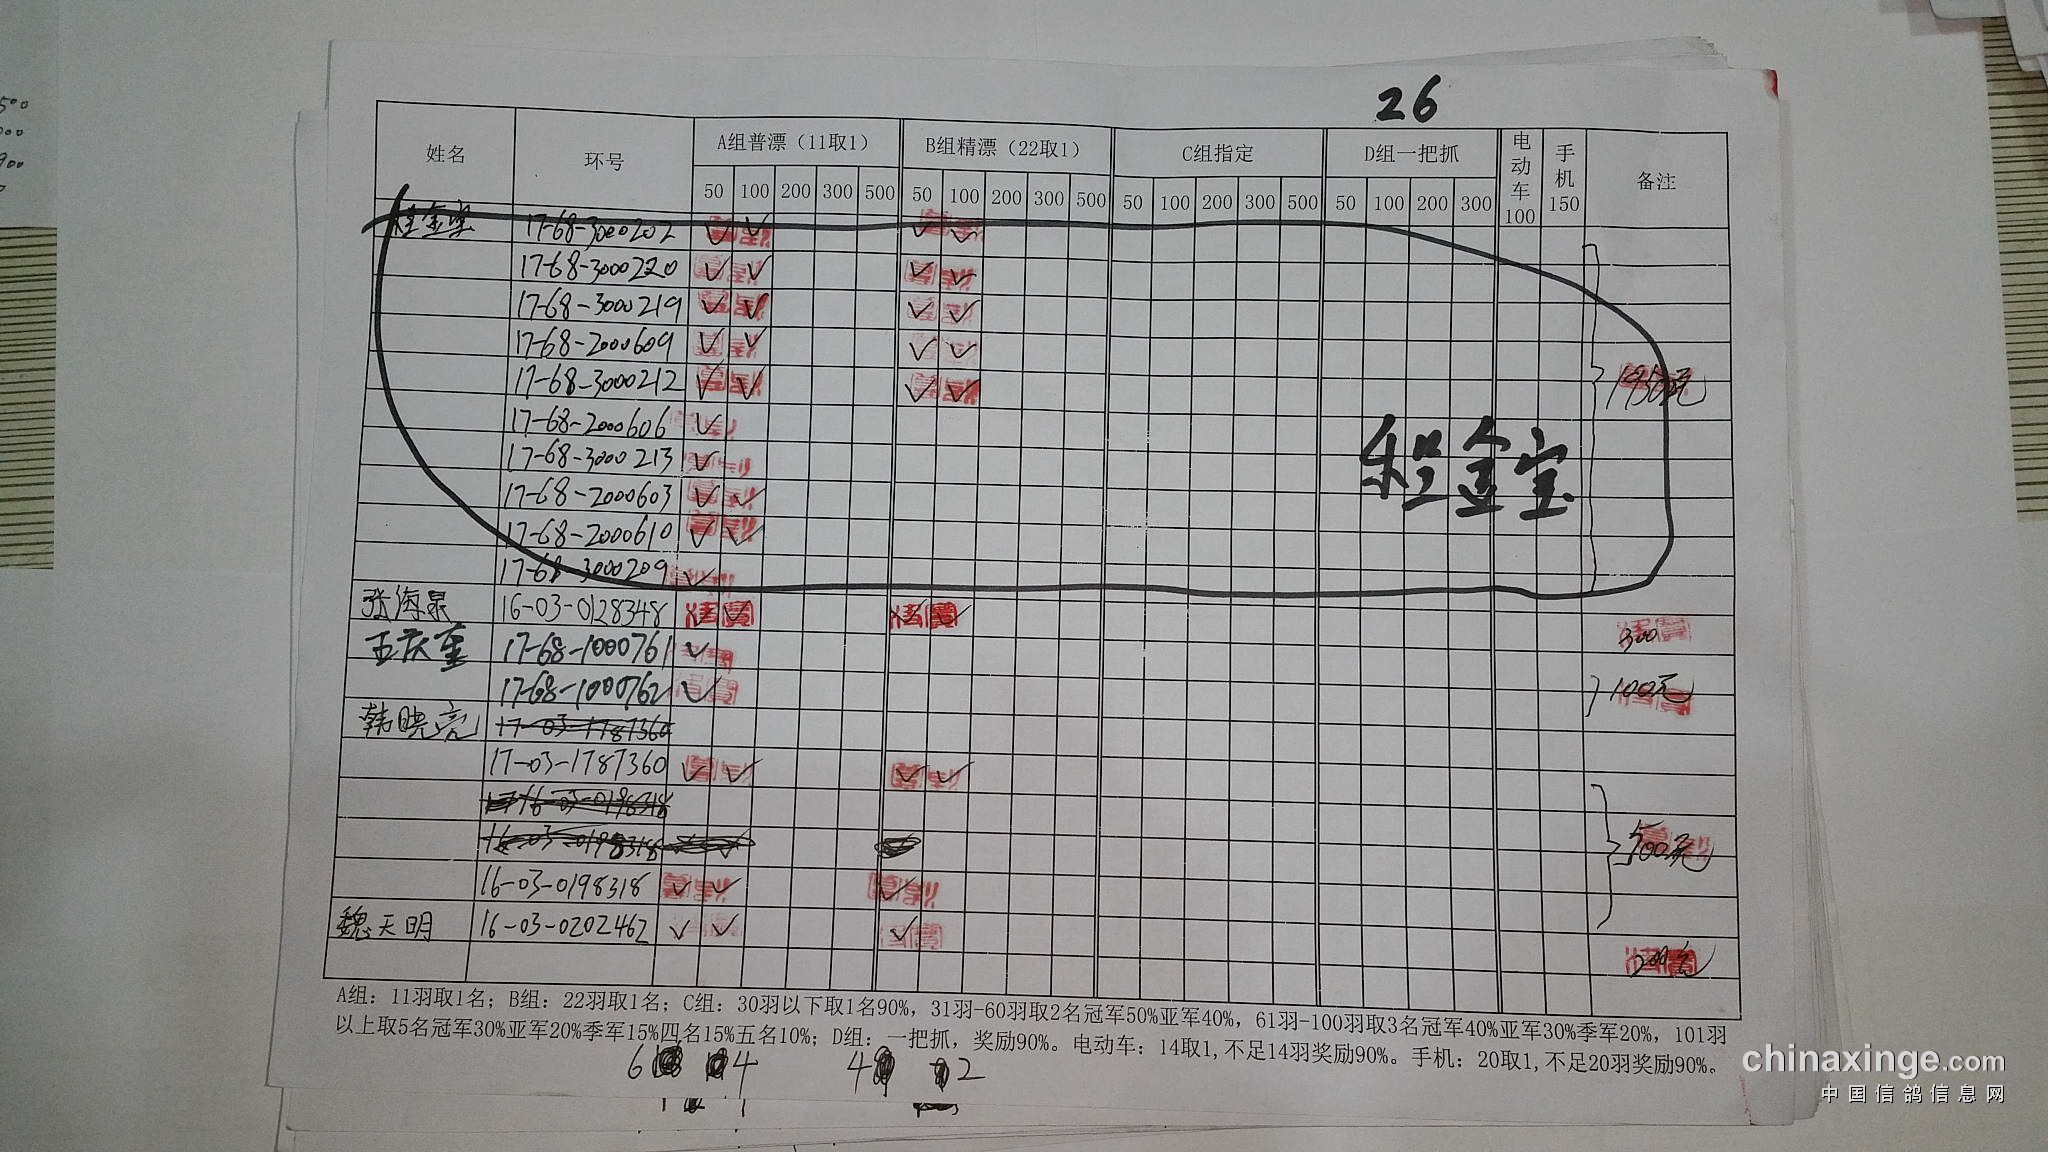 26
姓名 环号 A组普漂（11取1） B组精漂（22取1） C组指定 D组一把抓 电动车100 手机150 备注
50 100 200 300 500 50 100 200 300 500 50 100 200 300 500 50 100 200 300
程金宝 17-68-3000202 ✓ ✓ ✓ ✓
17-68-3000220 ✓ ✓ ✓ ✓
17-68-3000219 ✓ ✓ ✓ ✓
17-68-2000609 ✓ ✓ ✓ ✓
17-68-3000212 ✓ ✓ ✓ ✓ 1950元
17-68-2000606 ✓
17-68-3000213 ✓ 程金宝
17-68-2000603 ✓ ✓
17-68-2000610 ✓ ✓
17-68-3000209 ✓
张海泉 16-03-0128348 ✓ ✓ ✓ ✓ 300
王庆奎 17-68-1000761 ✓
17-68-1000762 ✓ 100元
韩晓亮 17-03-1787360
17-03-1787360 ✓ ✓ ✓ ✓
16-03-0198318
16-03-0198318 500元
16-03-0198318 ✓ ✓ ✓
魏天明 16-03-0202462 ✓ ✓ ✓
200元
A组：11羽取1名；B组：22羽取1名；C组：30羽以下取1名90%，31羽-60羽取2名冠军50%亚军40%，61羽-100羽取3名冠军40%亚军30%季军20%，101羽
以上取5名冠军30%亚军20%季军15%四名15%五名10%；D组：一把抓，奖励90%。电动车：14取1,不足14羽奖励90%。手机：20取1,不足20羽奖励90%。
6 4 4 2
chinaxinge.com
中国信鸽信息网